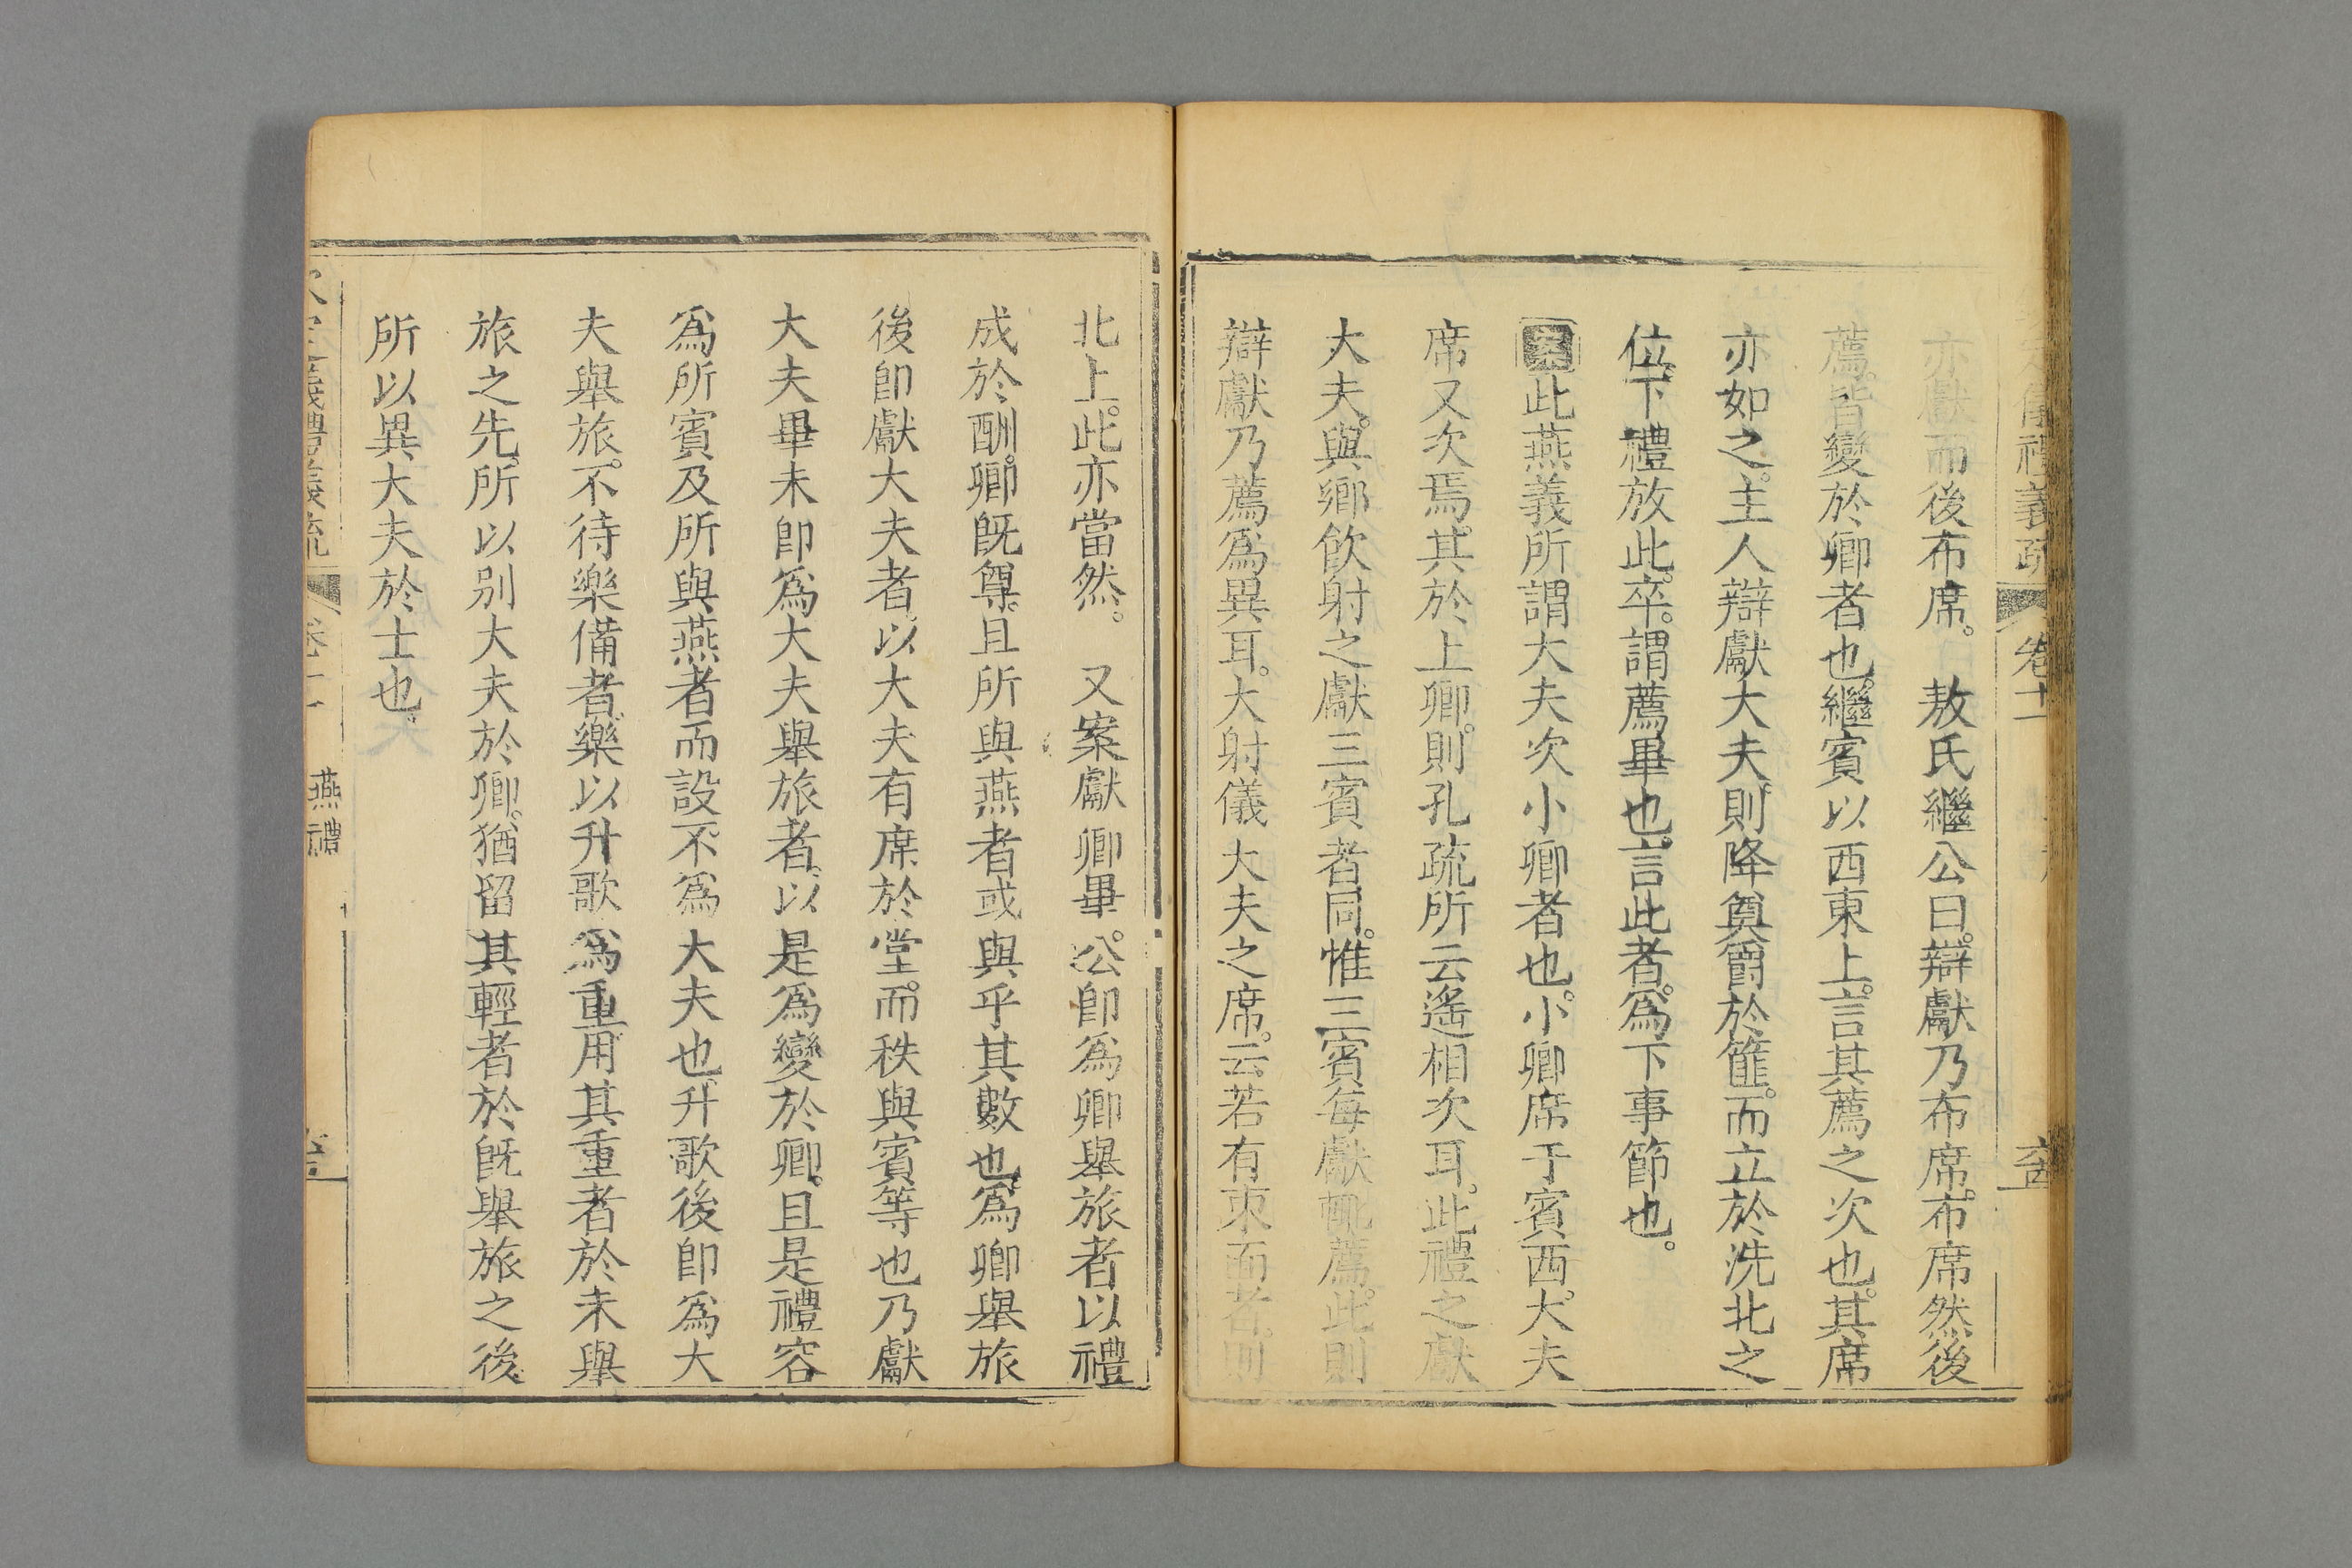 儀禮義疏 卷十一 六十四
亦獻而後布席。 敖氏繼公曰。辯獻乃布席。布席然後
薦。皆變於卿者也。繼賓以西東上。言其薦之次也。其席
亦如之。主人辯獻大夫。則降奠爵於篚。而立於洗北之
位。下禮放此。卒。謂薦畢也。言此者。為下事節也。
案此燕義所謂大夫次小卿者也。小卿席于賓西。大夫
席又次焉。其於上卿。則孔疏所云遙相次耳。此禮之獻
大夫。與鄉飲射之獻三賓者同。惟三賓每獻輒薦。此則
辯獻乃薦為異耳。大射儀大夫之席。云若有東面者。則
北上。此亦當然。 又案獻卿畢。公卽為卿舉旅者。以禮
成於酬。卿旣尊。且所與燕者或與乎其數也。為卿舉旅
後卽獻大夫者。以大夫有席於堂。而秩與賓等也。乃獻
大夫畢未卽為大夫舉旅者。以是為變於卿。且是禮容
為所賓及所與燕者而設。不為大夫也。升歌後卽為大
夫舉旅。不待樂備者。樂以升歌為重。用其重者於未舉
旅之先。所以別大夫於卿。猶留其輕者於旣舉旅之後。
所以異大夫於士也。
義禮義疏 卷十一 燕禮